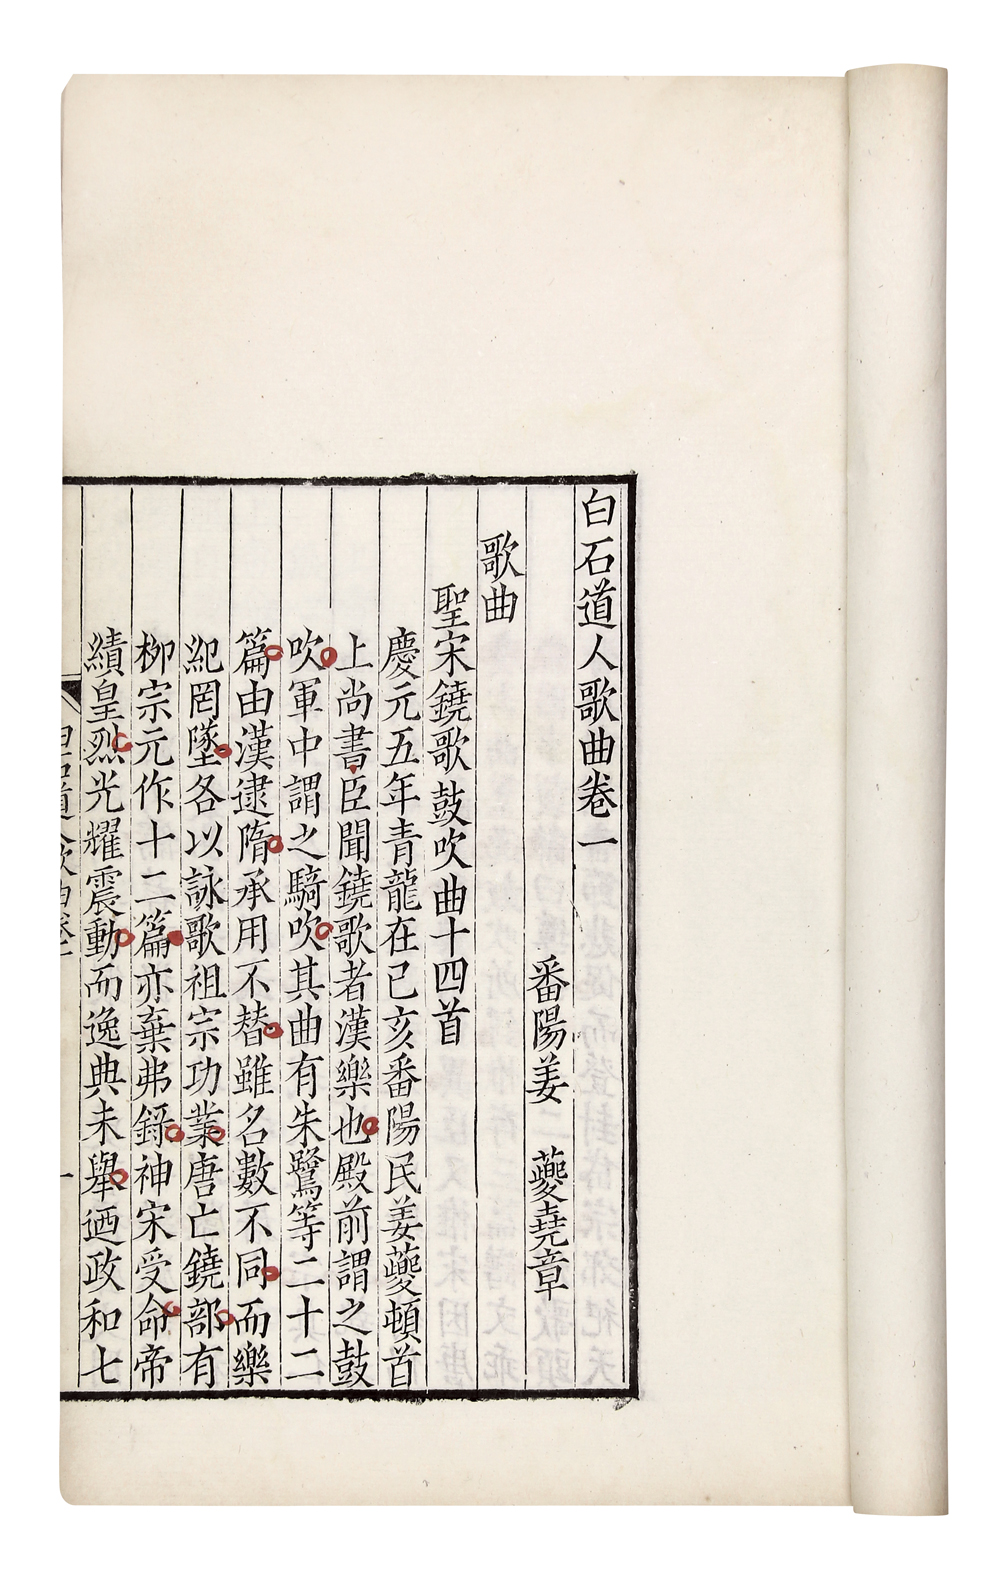 白石道人歌曲卷一
番陽姜 夔堯章
歌曲
聖宋鐃歌鼓吹曲十四首
慶元五年青龍在已亥番陽民姜夔頓首
上尚書臣聞鐃歌者漢樂也殿前謂之鼓
吹軍中謂之騎吹其曲有朱鷺等二十二
篇由漢逮隋承用不替雖名數不同而樂
紀罔墜各以詠歌祖宗功業唐亡鐃部有
栁宗元作十二篇亦棄弗錄神宋受命帝
績皇烈光耀震動而逸典未舉迺政和七